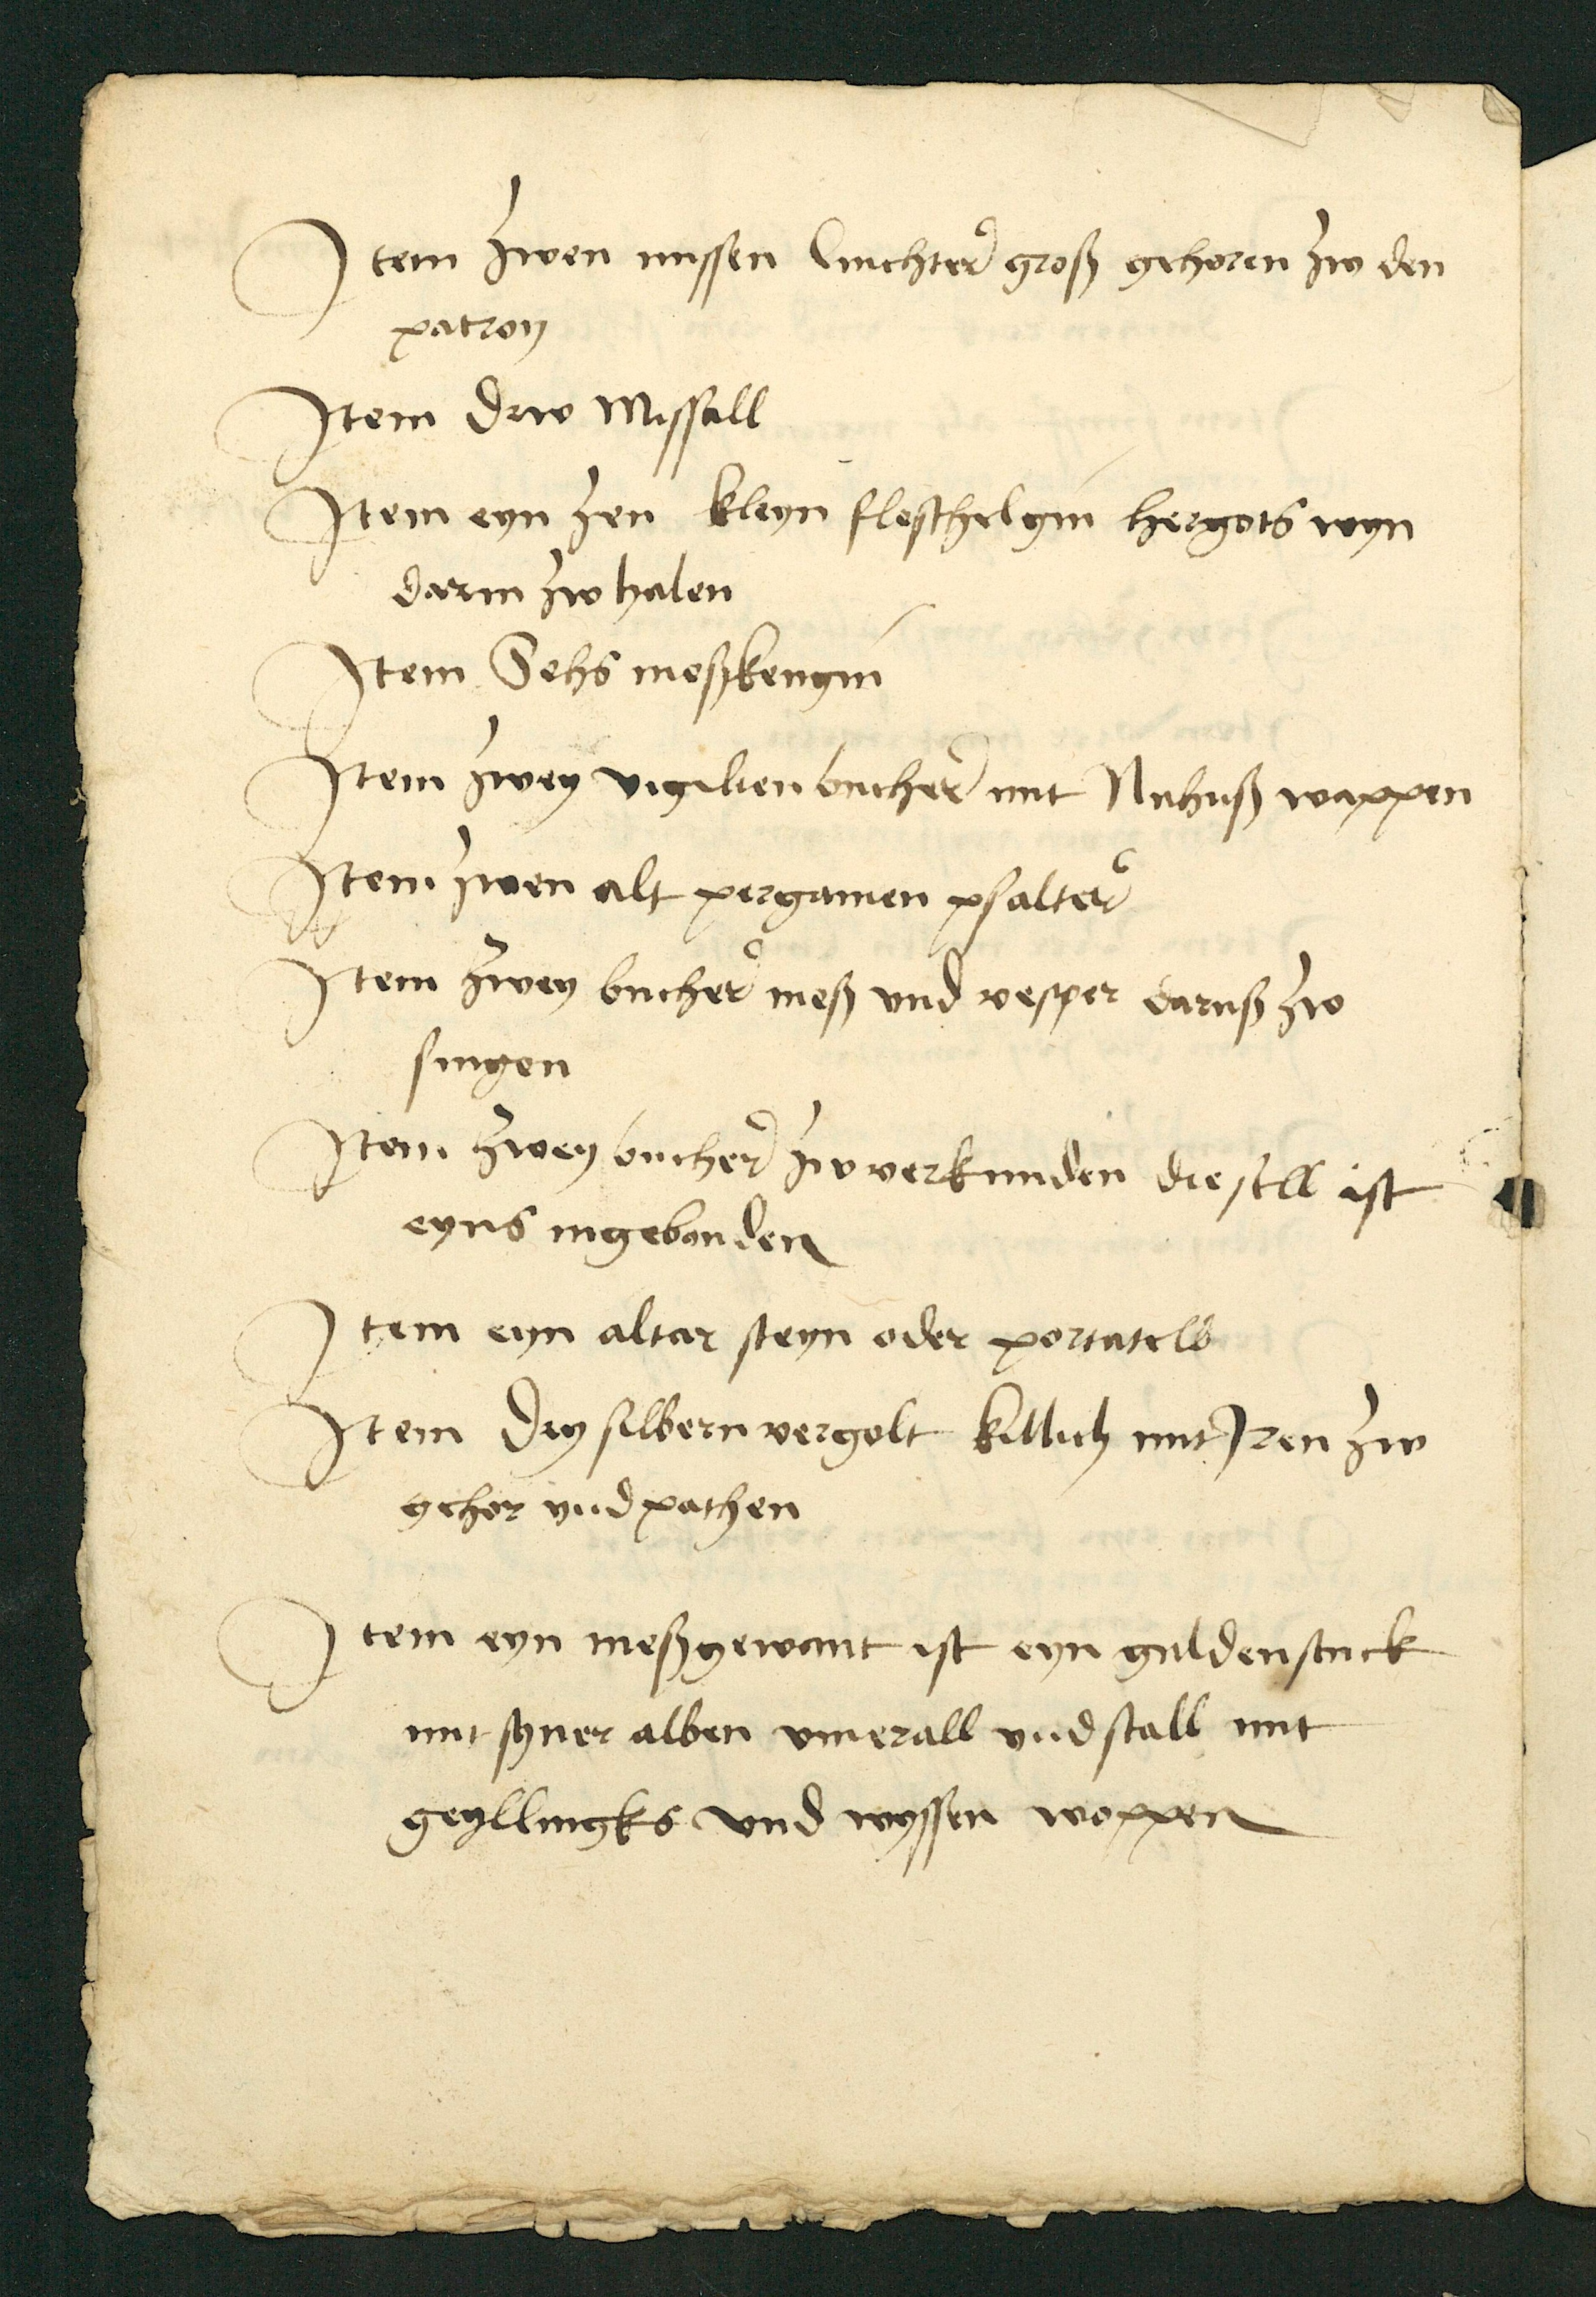 Item zwen missen luchter groß gehoren zw den
patron
Item drw Missall
Item eyn zen kleyn fleschelgin hergots wyn
darin zw halen
Item Sehs meßkengin
Item zwey vigilien bucher mit Nuhuß wappen
Item zwen alt pergamen psalter
Item zwey bucher meß vnd vesper daruß zw
singen
Item zwey bucher zw verkunden die sell ist
eyns ingebonden
Item eyn altar steyn oder portatell
Item dry silbern vergolt killich mit Iren zw
gehor vnd pathen
Item eyn meßgewant ist eyn guldenstuck
mit syner alben vmerall vnd stall mit
geyllingks vnd wyssen woppen